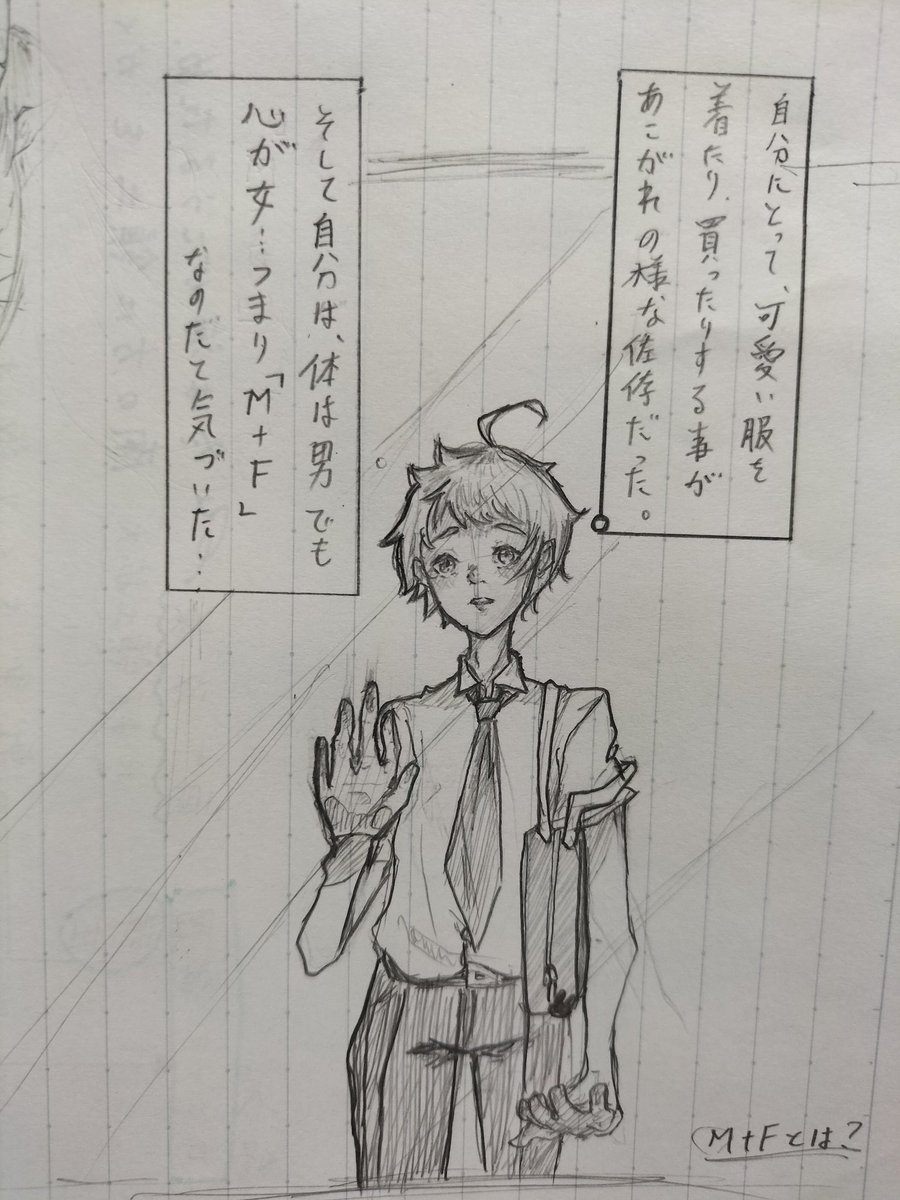 自分にとって、可愛い服を
着たり、買ったりする事が
あこがれの様な佐侍だった。
そして自分は、体は男でも
心が女…つまり「M+F」
なのだて気づいた…
M+Fとは?